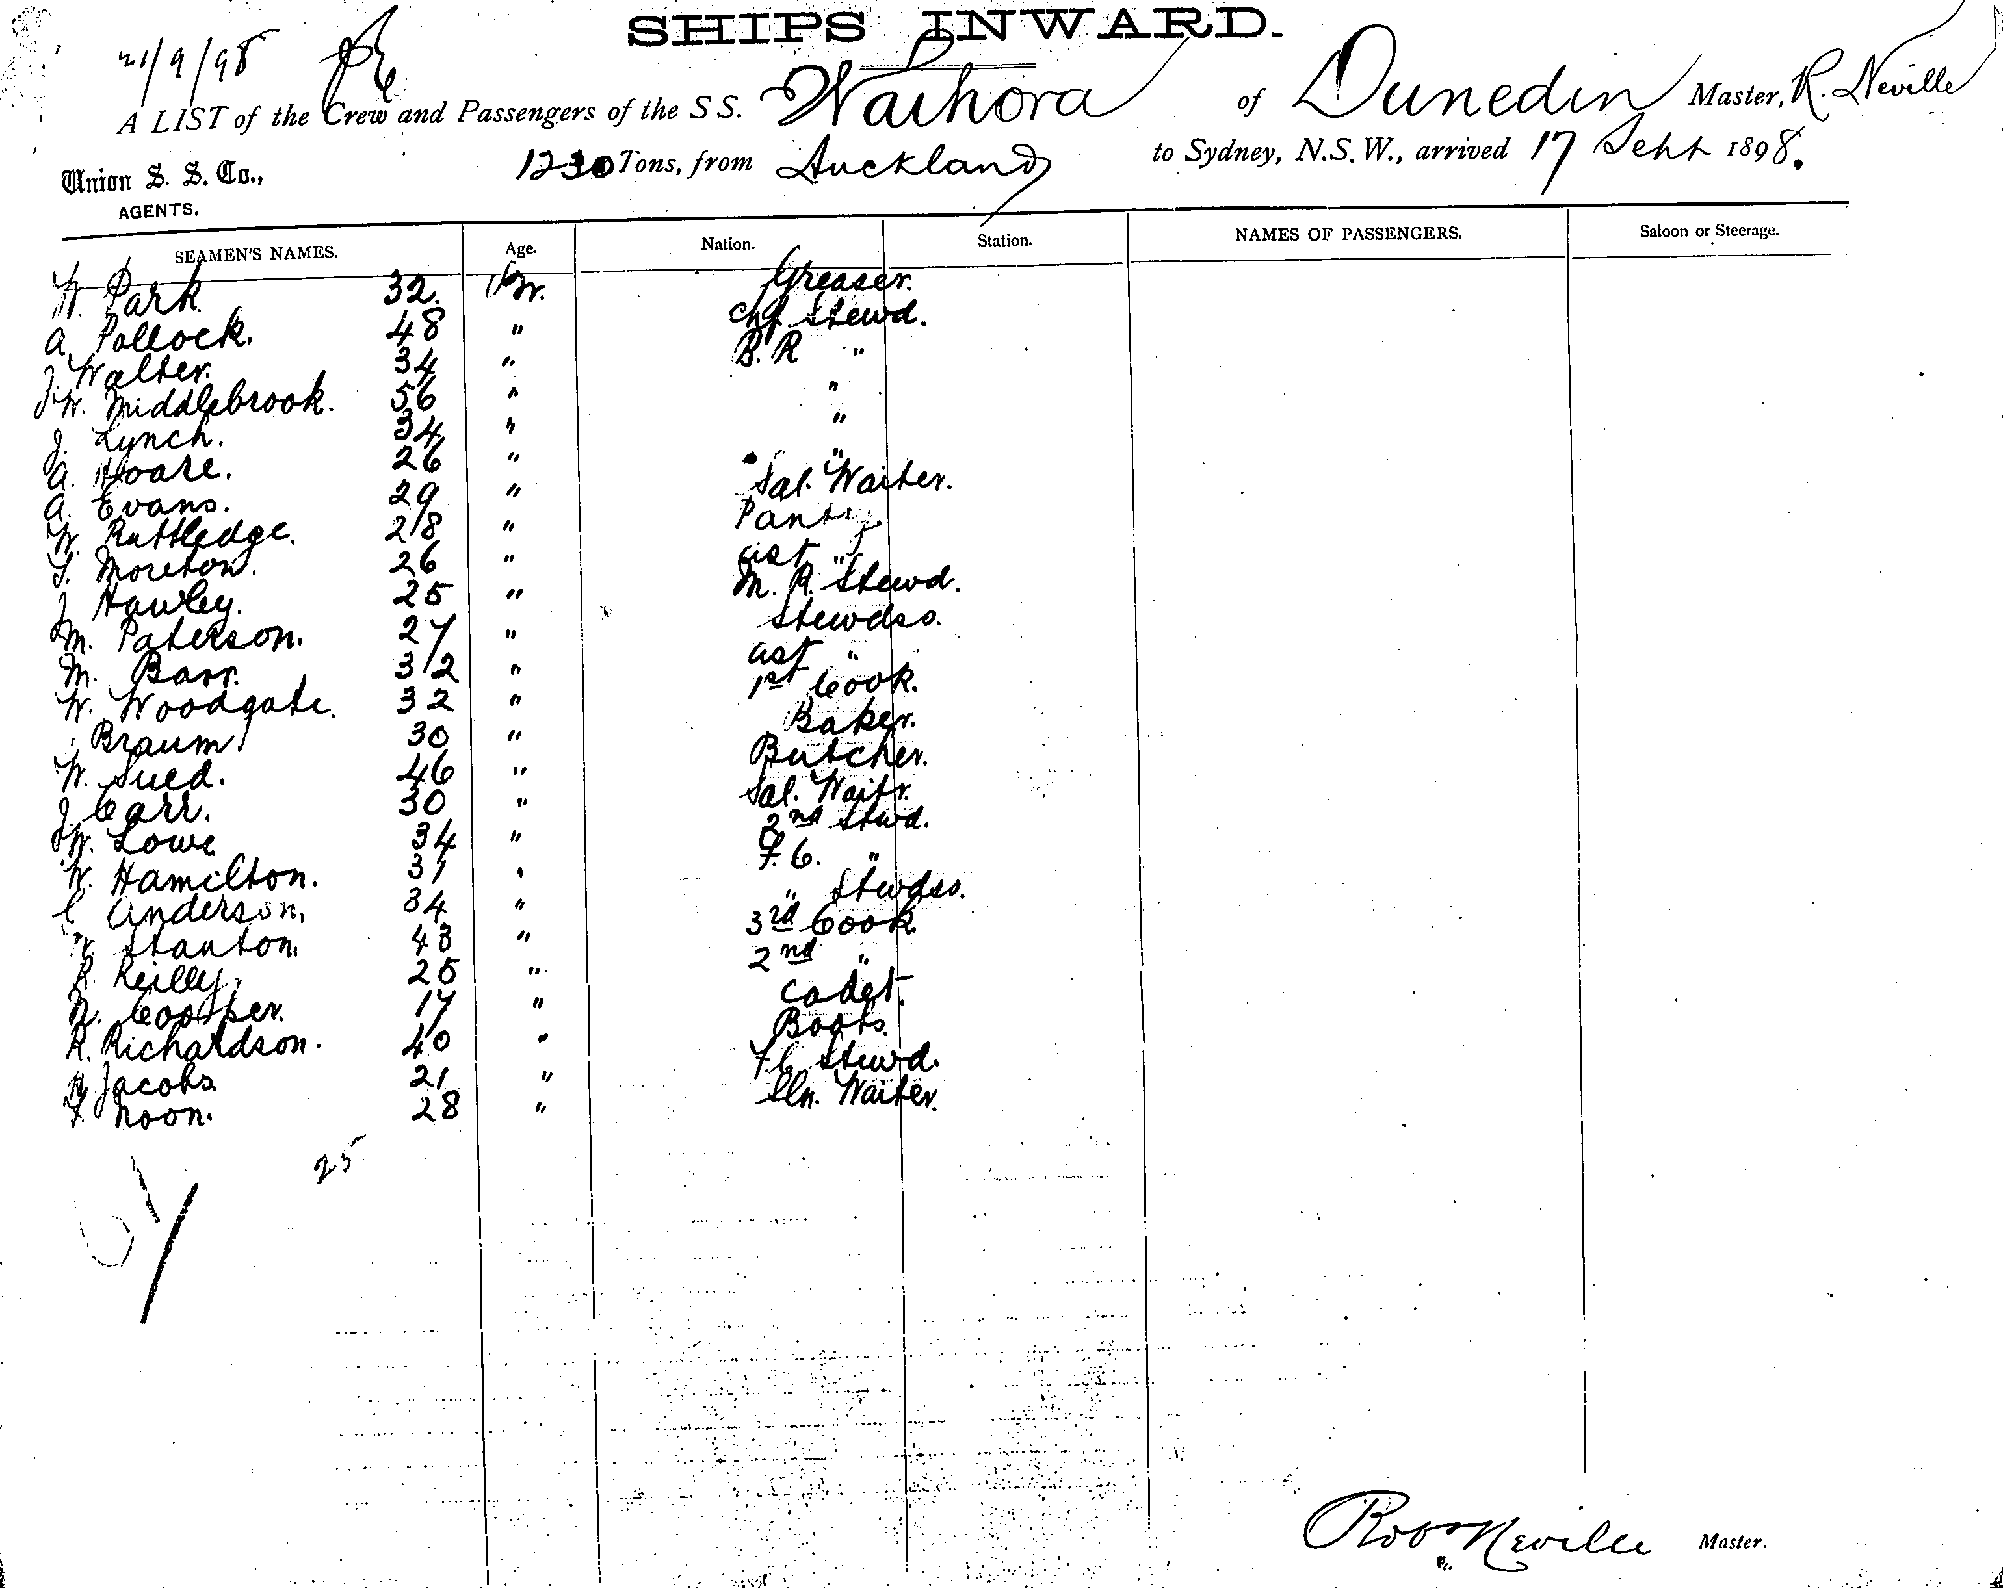 SHIPS INWARD.
21/9/98
A LIST of the Crew and Passengers of the S S. Waihora of Dunedin Master, R. Neville
Union S. S. Co., 1230 Tons, from Auckland to Sydney, N.S.W., arrived 17 Sept 1898.
AGENTS.
SEAMEN'S NAMES. Age. Nation. Station. NAMES OF PASSENGERS. Saloon or Steerage.
W. Park 32. Br. Greaser.
A. Pollock. 48 " Chf Stewd.
J. Walter. 34 " B. R "
J. W. Middlebrook. 56 " "
J. Lynch. 34 " "
A. Hoare. 26 " "
A. Evans. 29 " Sal. Waiter.
W. Ruttledge. 28 " Pantry
S. Moreton. 26 " ast "
J. Hawley. 25 " M. R. Stewd.
M. Paterson. 27 " Stewdss.
M. Barr. 32 " ast "
W. Woodgate. 32 " 1st Cook.
Braum 30 " Baker.
W. Sued. 46 " Butcher.
J. Carr. 30 " Sal. Waitr.
W. Lowe 34 " 2nd Stwd.
W. Hamilton. 31 " F. C. "
C Anderson. 34 " " Stewdss.
W. Stanton. 43 " 3rd Cook
R. Reilly. 25 " 2nd "
N. Cooper. 17 " Cadet.
R. Richardson. 40 " Boots.
Jacobs 21 " F C Stewd.
F. Noon. 28 " Sln. Waiter.
25
Robt Neville Master.